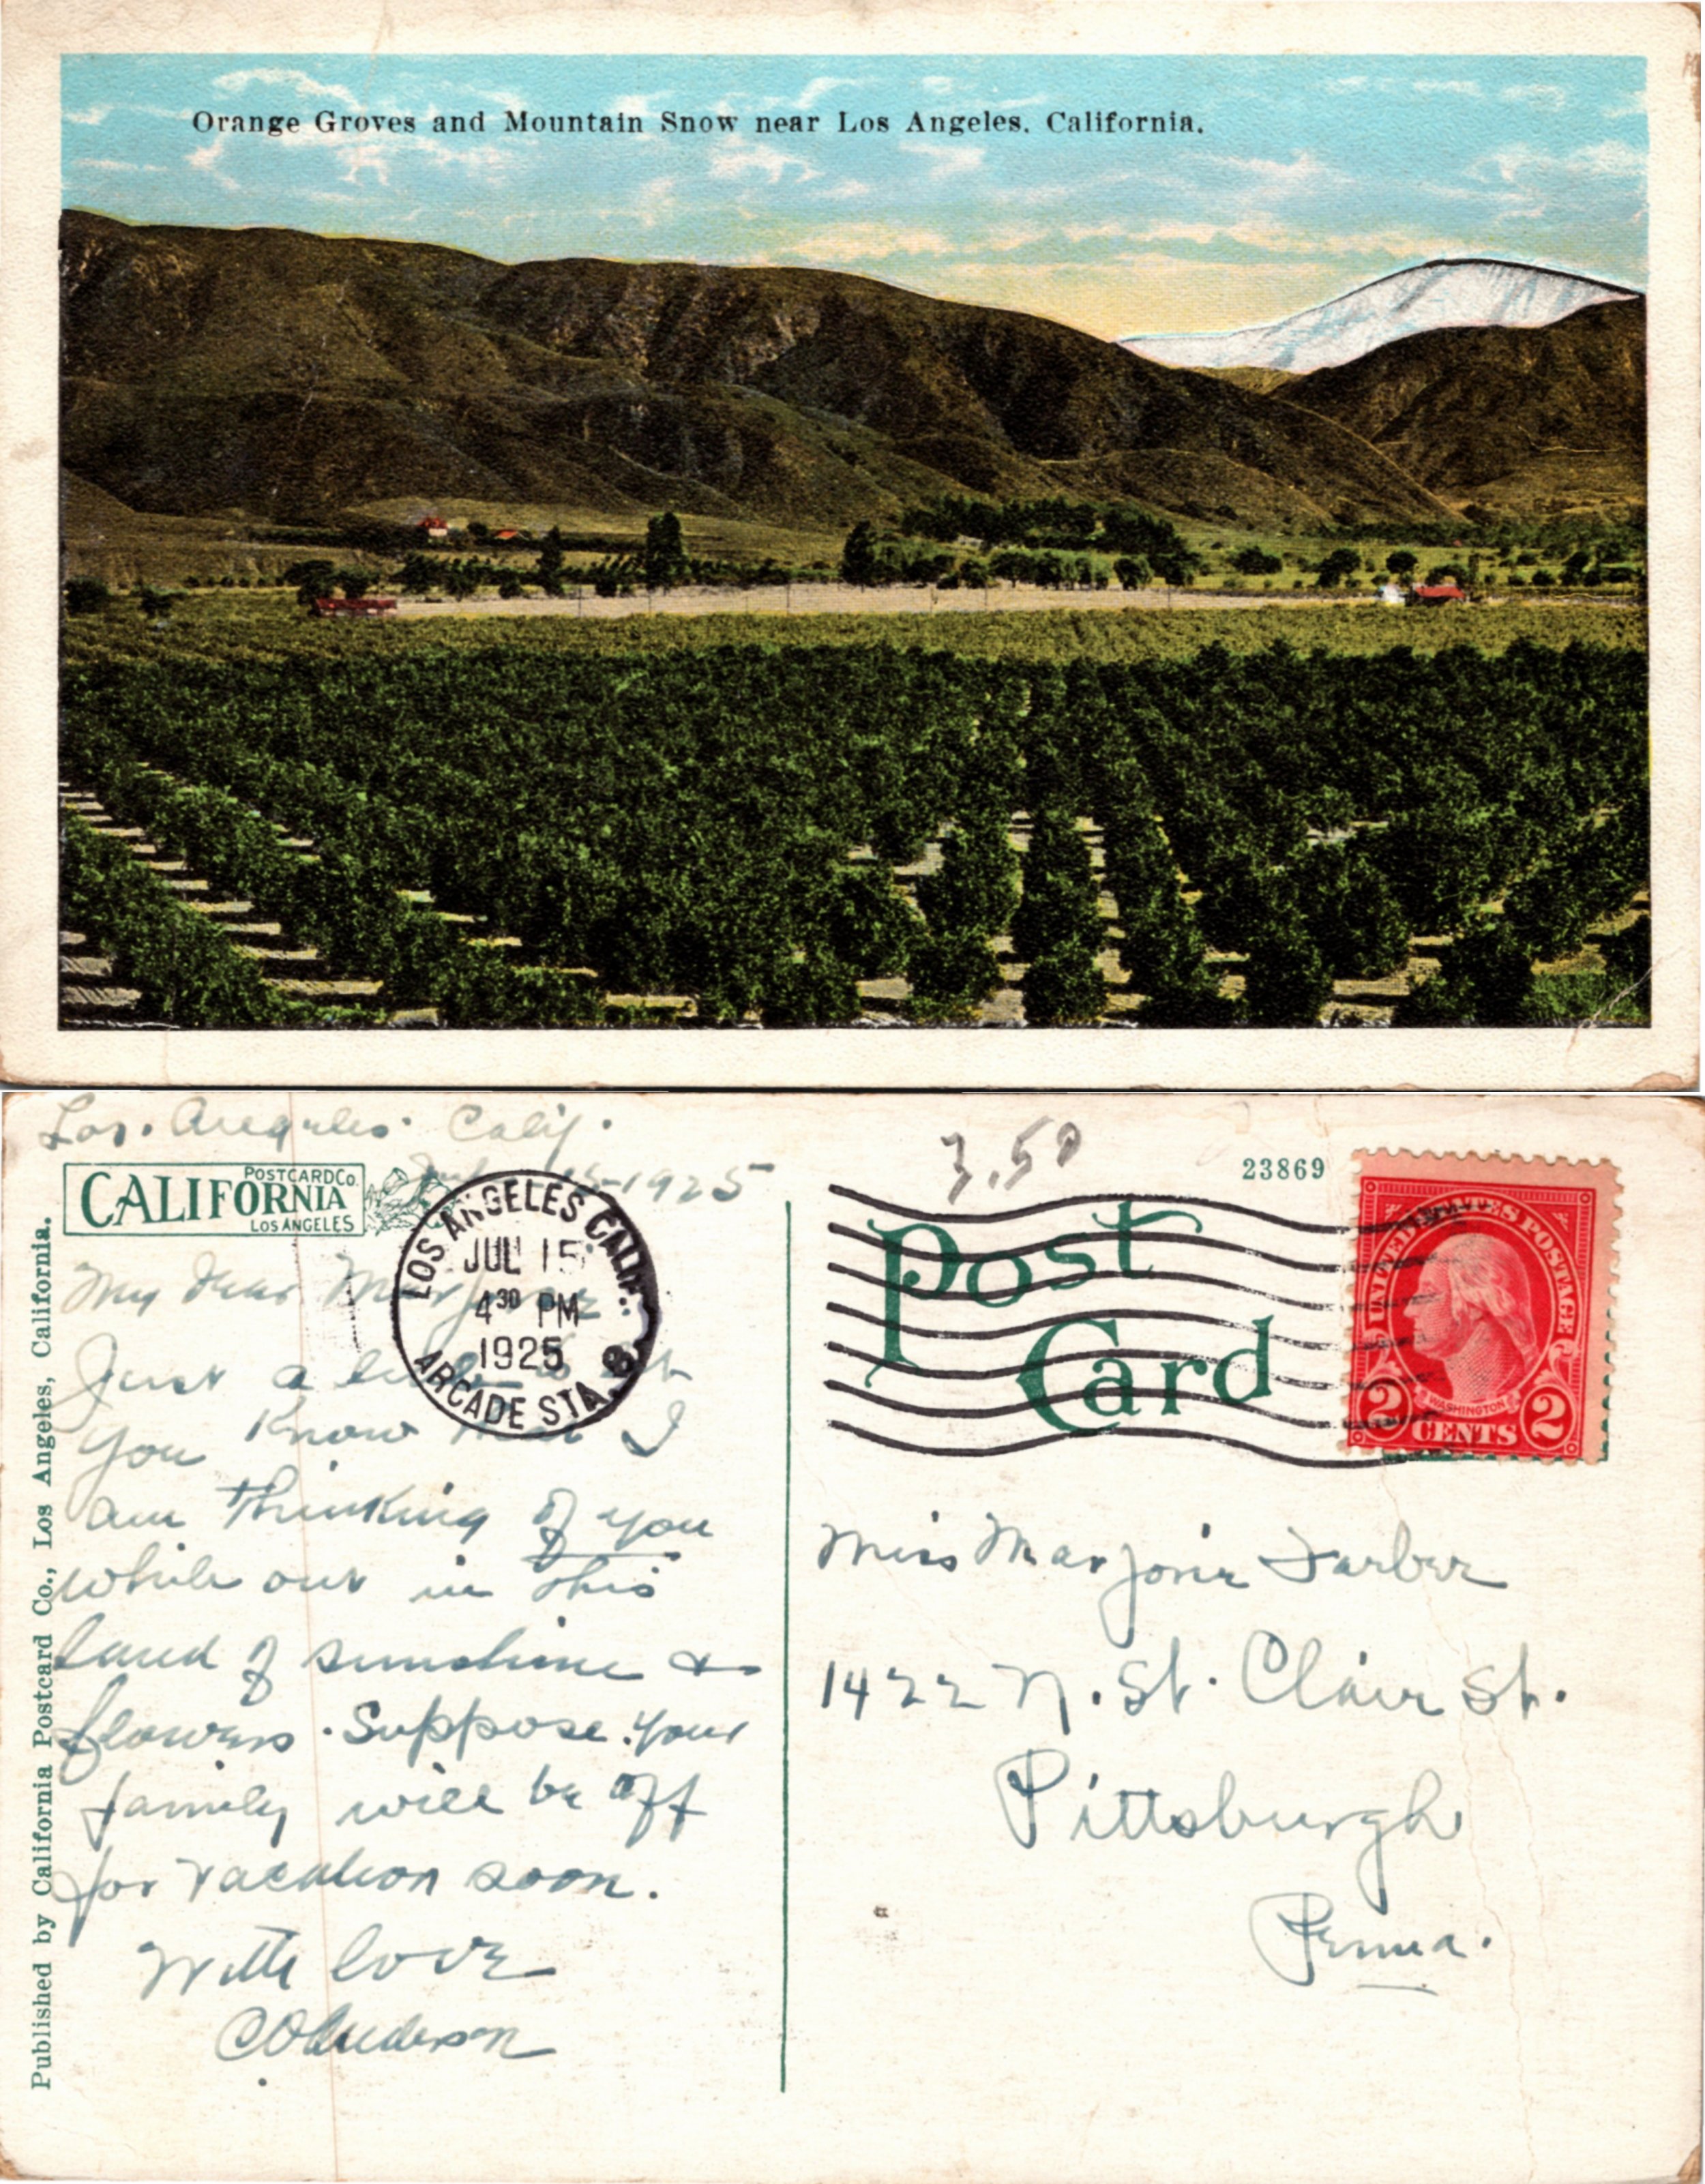 Orange Groves and Mountain Snow near Los Angeles, California.
Los. Angeles. Calif.
July 15-1925
CALIFORNIA
POSTCARD CO.
LOS ANGELES
LOS ANGELES CALIF.
JUL 15
4 30 PM
1925
ARCADE STA.
My Dear Marjorie
Just a to let
you know that I
am thinking of you
while out in this
land of sunshine &
flowers. Suppose your
family will be off
for vacation soon.
With love
C O Anderson
Published by California Postcard Co., Los Angeles, California.
3.50
23869
Post
Card
UNITED STATES POSTAGE
WASHINGTON
2 CENTS 2
Miss Marjorie Farber
1422 N. St. Clair St.
Pittsburgh
Penna.